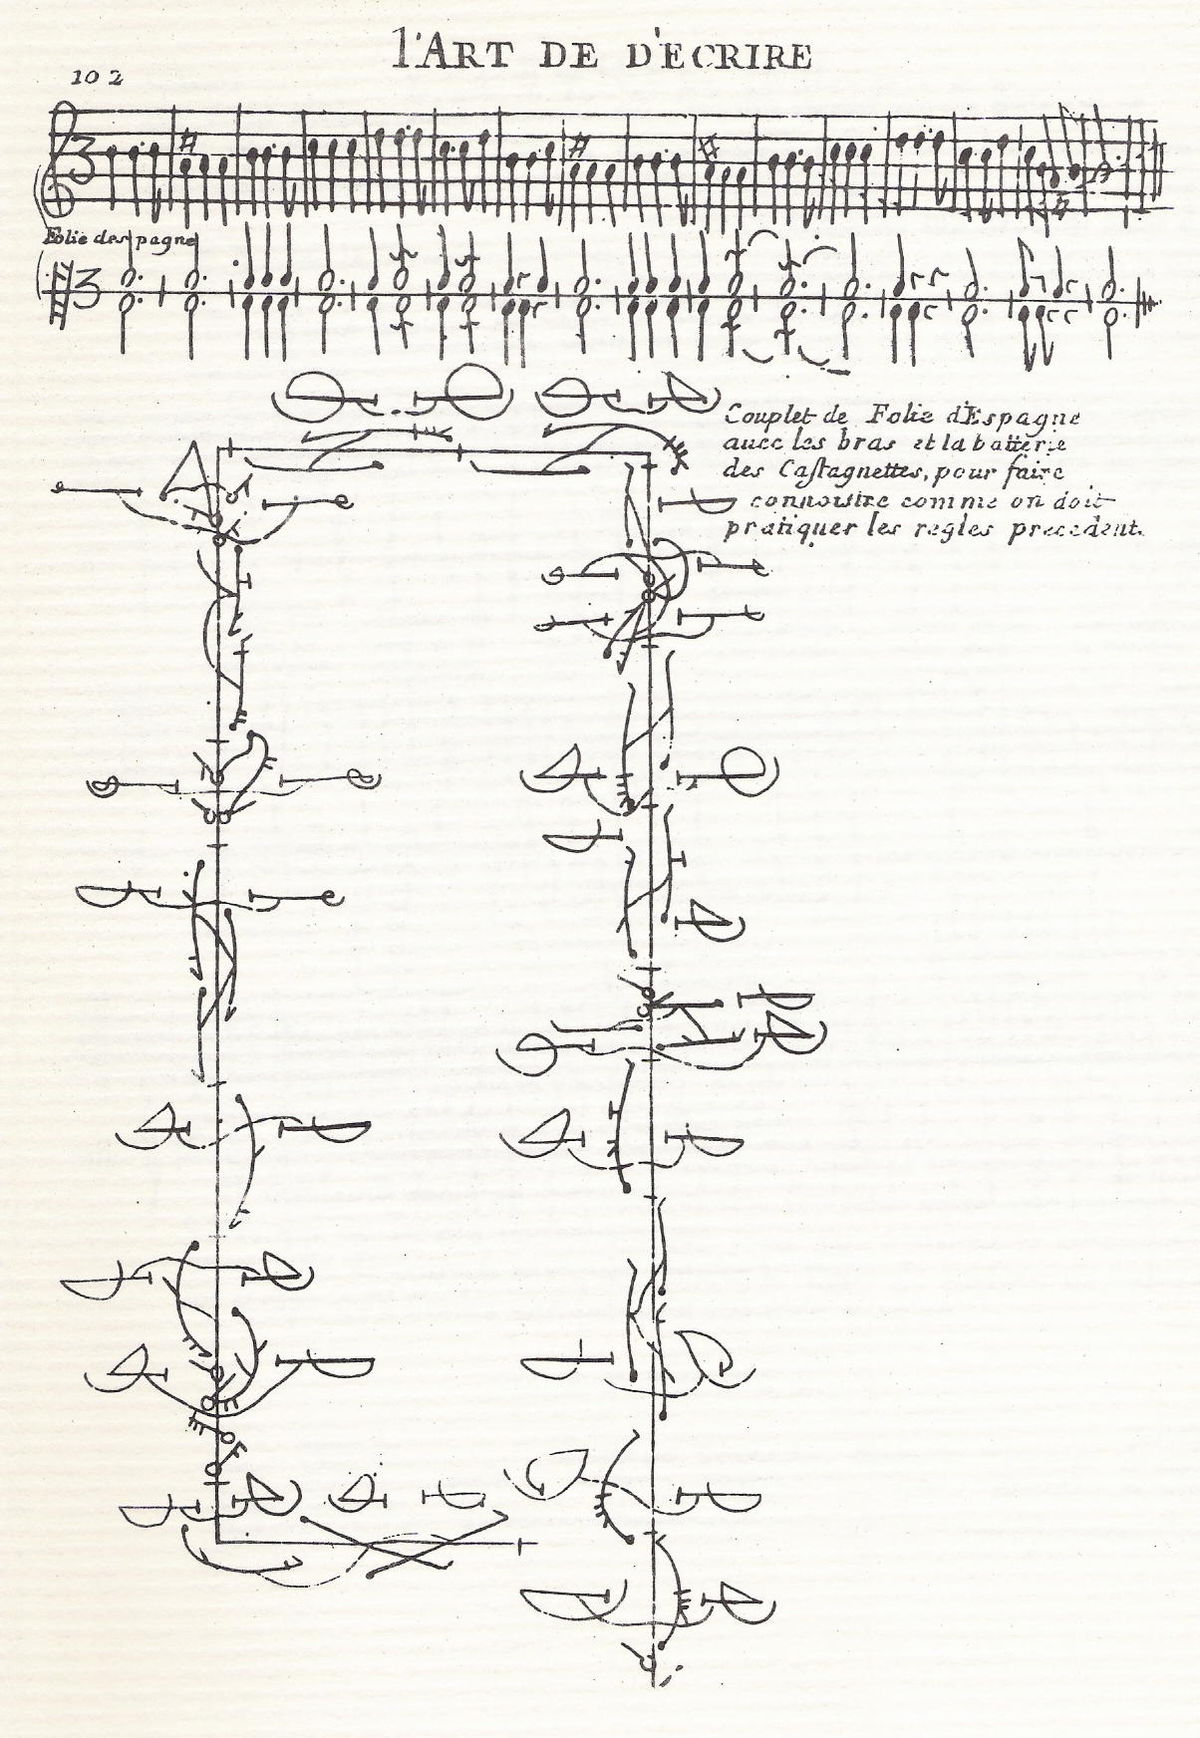 l'ART DE D'ECRIRE
10 2
Folie des pagne
3
3
Couplet de Folie d'Espagne
auec les bras et la batterie
des Castagnettes, pour faire
connoistre comme on doit
pratiquer les regles precedent.